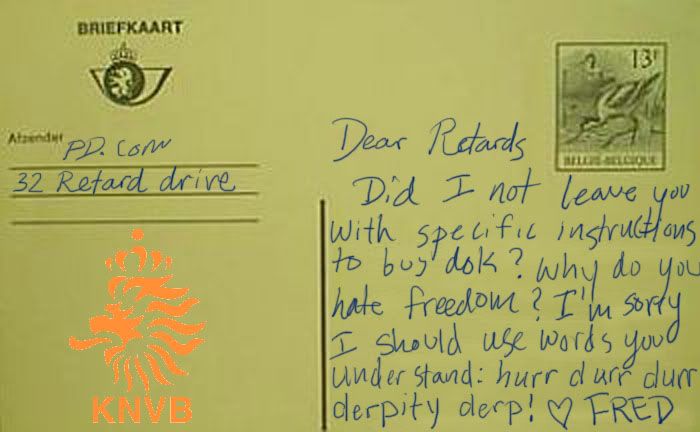 BRIEFKAART
13F
BELGIË-BELGIQUE
Afzender
PD.com
32 Retard drive
Dear Retards
Did I not leave you
with specific instructions
to buy dok? Why do you
hate freedom? I'm sorry
I should use words you
understand: hurr durr durr
derpity derp! ♡ FRED
KNVB